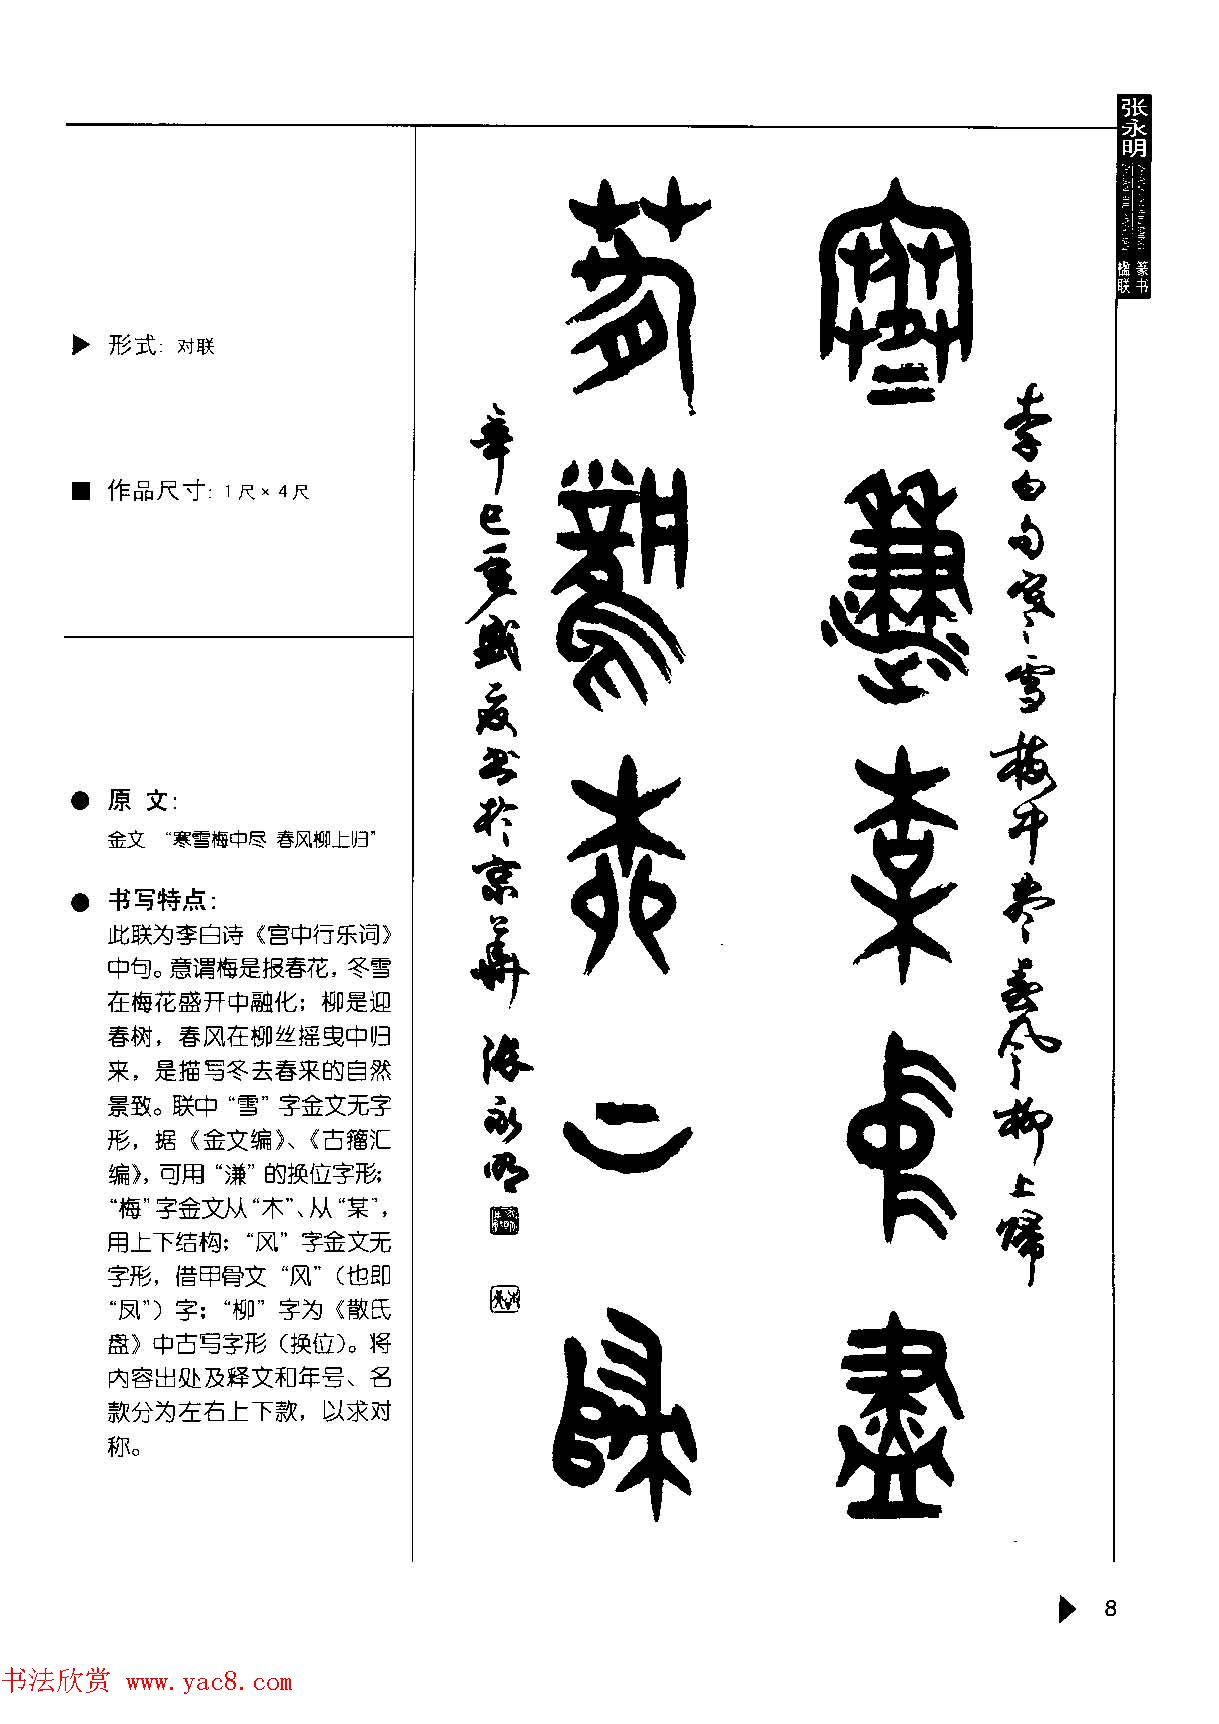 张永明
篆书
楹联
形式: 对联
作品尺寸: 1尺×4尺
原 文:
金文 “寒雪梅中尽 春风柳上归”
书写特点:
此联为李白诗《宫中行乐词》
中句。意谓梅是报春花，冬雪
在梅花盛开中融化；柳是迎
春树，春风在柳丝摇曳中归
来，是描写冬去春来的自然
景致。联中“雪”字金文无字
形，据《金文编》、《古籀汇
编》，可用“溓”的换位字形；
“梅”字金文从“木”、从“某”，
用上下结构；“风”字金文无
字形，借甲骨文“风”（也即
“凤”）字；“柳”字为《散氏
盘》中古写字形（换位）。将
内容出处及释文和年号、名
款分为左右上下款，以求对
称。
李白句寒雪梅中尽春风柳上归
寒雪梅中尽
春风柳上归
辛巳重盛夏书于京华 张永明
8
书法欣赏 www.yac8.com